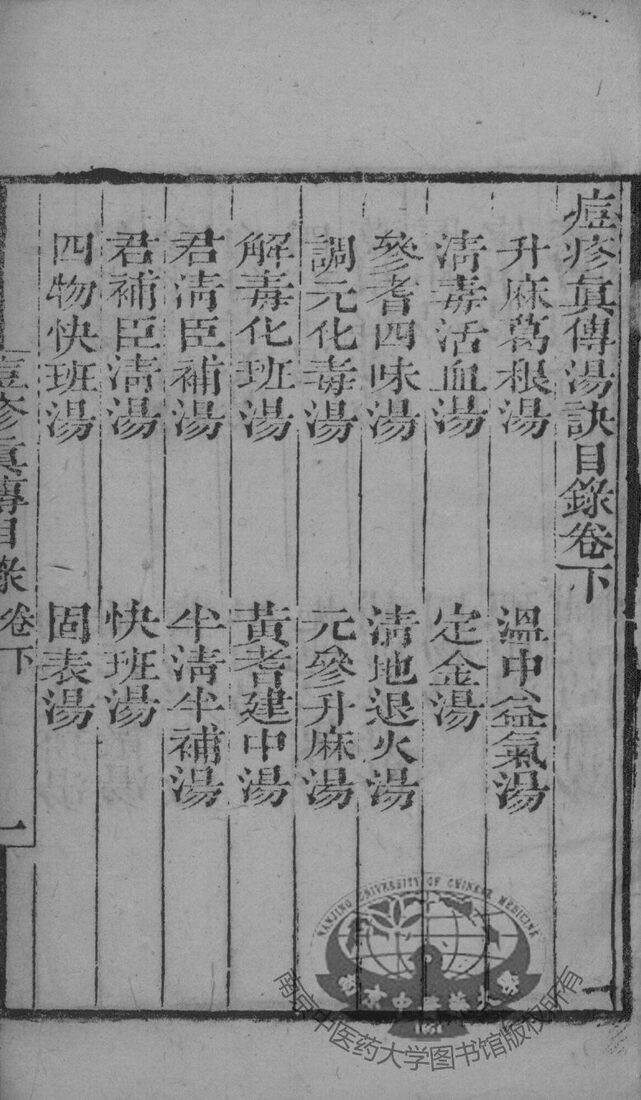 痘疹眞傳湯訣目錄卷下
升麻葛根湯　溫中益氣湯
淸毒活血湯　定金湯
參耆四味湯　淸地退火湯
調元化毒湯　元參升麻湯
解毒化班湯　黃耆建中湯
君淸臣補湯　半淸半補湯
君補臣淸湯　快班湯
四物快班湯　固表湯
痘疹眞傳目錄　卷下　一
NANJING UNIVERSITY OF CHINESE MEDICINE
南京中醫藥大學
南京中医药大学图书馆版权所有